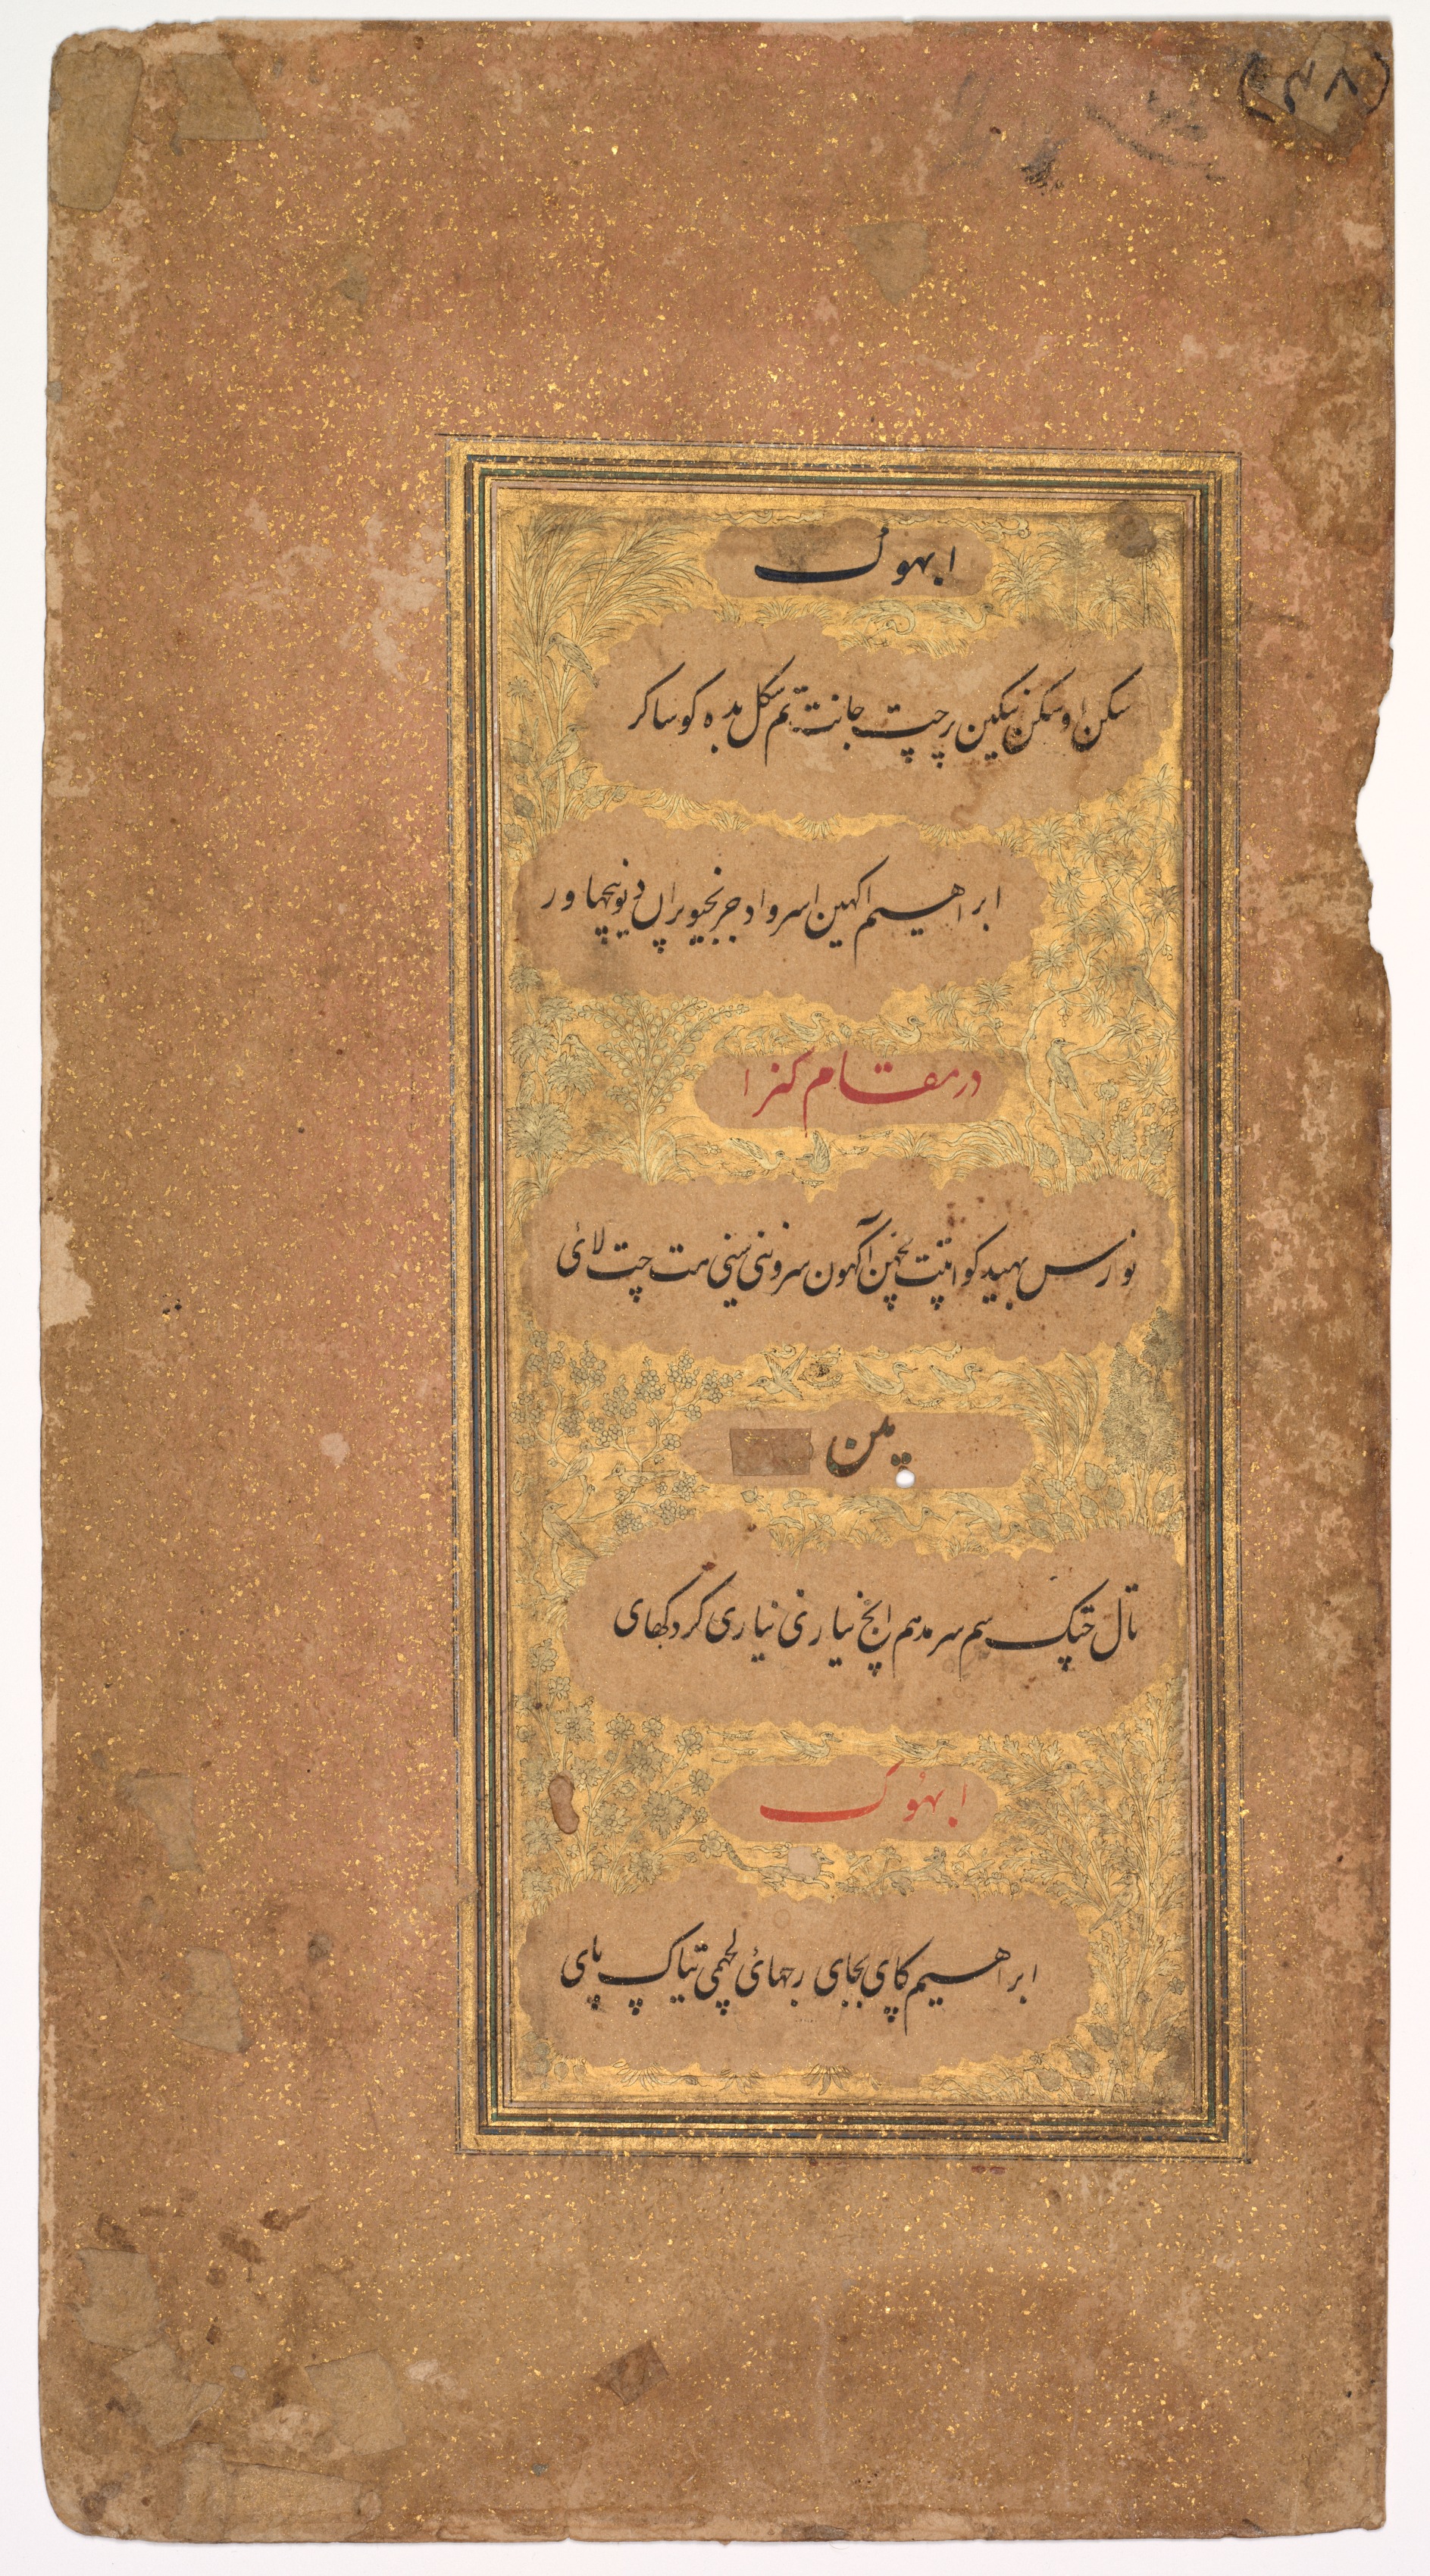 (۴۸)
ابهوک
سکن او سکن سکین رچپت جانت تم سکل بده کو ساکر
ابراهیم اکهین اسرواد جرنجیو پران دیو نچهاور
در مقام کنرا
نورس بهید کو انپت لچهن آکهون سرونی سنی مت چت لائی
پین
تال ختک سم سر مدهم انچ نیارنی نیاری کر دکهای
ابهوک
ابراهیم کاپی بجای رجهائ لچهمی تیاک پای